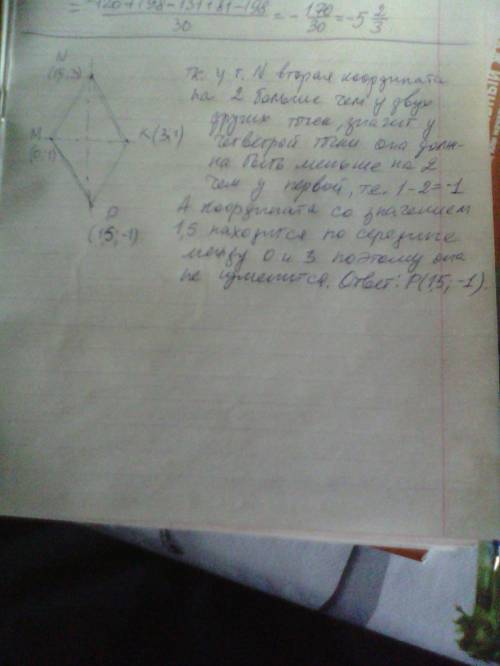 = -120+198-131+81-198 / 30 = - 170/30 = -5 2/3
N
(1,5;3)
M
(0;1)
K(3;1)
P
(1,5;-1)
т.к. у т. N вторая координата
на 2 больше чем у двух
других точек, значит у
четвертой точки она долж-
на быть меньше на 2
чем у первой, т.е. 1-2=-1
А координата со значением
1,5 находится по середине
между 0 и 3 поэтому она
не изменится. Ответ: P(1,5;-1).